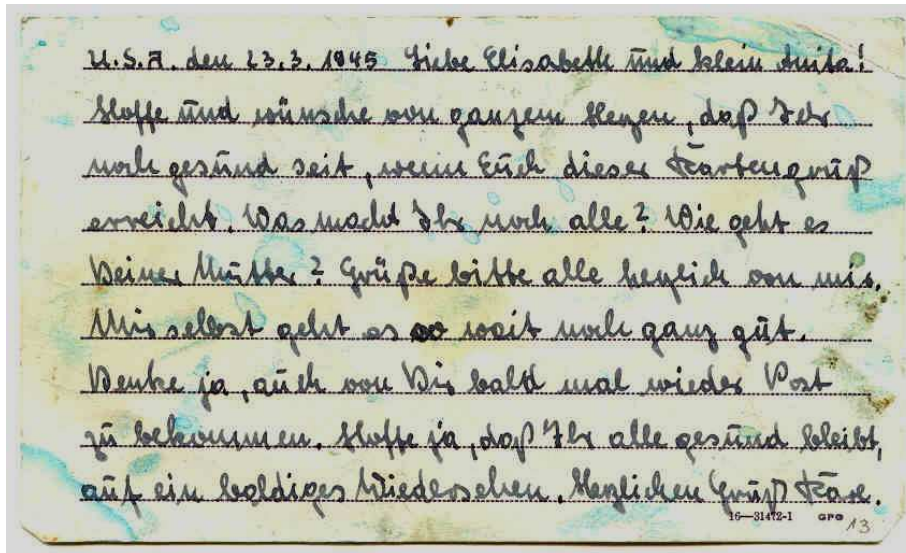 U.S.A. den 23.3.1945 Liebe Elisabeth und klein Anita!
Hoffe und wünsche von ganzem Herzen, daß Ihr
noch gesund seit, wenn Euch dieser Kartengruß
erreicht. Was macht Ihr noch alle? Wie geht es
Deiner Mutter? Grüße bitte alle herzlich von mir.
Mir selbst geht es so weit noch ganz gut.
Denke ja, auch von Dir bald mal wieder Post
zu bekommen. Hoffe ja, daß Ihr alle gesund bleibt,
auf ein baldiges Wiedersehen. Herzlichen Gruß Karl.
16—31472-1 GPO 13